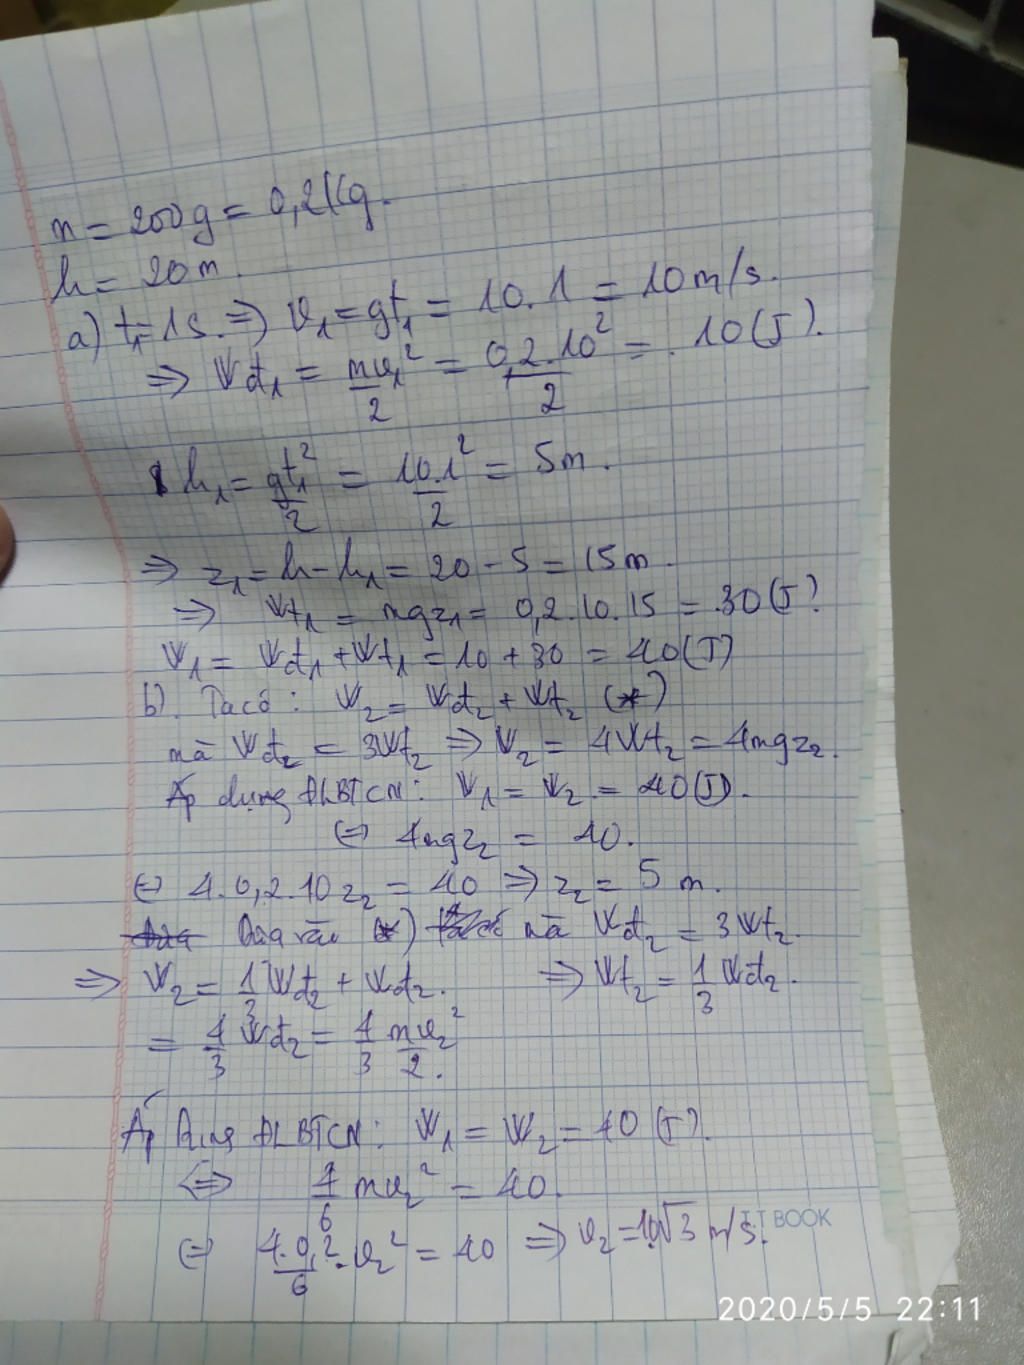 m = 200g = 0,2Kg.
h = 20m.
a) t₁=1s. => v₁ = gt₁ = 10.1 = 10m/s.
=> Wđ₁ = mv₁²/2 = 0,2.10²/2 = 10(J).
h₁ = gt₁²/2 = 10.1²/2 = 5m.
=> z₁ = h - h₁ = 20 - 5 = 15m.
=> Wt₁ = mgz₁ = 0,2.10.15 = 30(J)
W₁ = Wđ₁ + Wt₁ = 10 + 30 = 40(J)
b). Ta có: W₂ = Wđ₂ + Wt₂ (*)
mà Wđ₂ = 3Wt₂ => W₂ = 4Wt₂ = 4mgz₂.
Áp dụng ĐLBTCN: W₁ = W₂ = 40(J).
<=> 4mgz₂ = 40.
<=> 4.0,2.10z₂ = 40 => z₂ = 5m.
Đưa vào (*) mà Wđ₂ = 3Wt₂.
=> W₂ = 1/3 Wđ₂ + Wđ₂. => Wt₂ = 1/3 Wđ₂.
= 4/3 Wđ₂ = 4/3 mv₂²/2.
Áp Dụng ĐLBTCN: W₁ = W₂ = 40(J).
<=> 4/6 mv₂² = 40.
<=> 4.0,2/6 . v₂² = 40 => v₂ = 10√3 m/s.
TT BOOK
2020/5/5 22:11